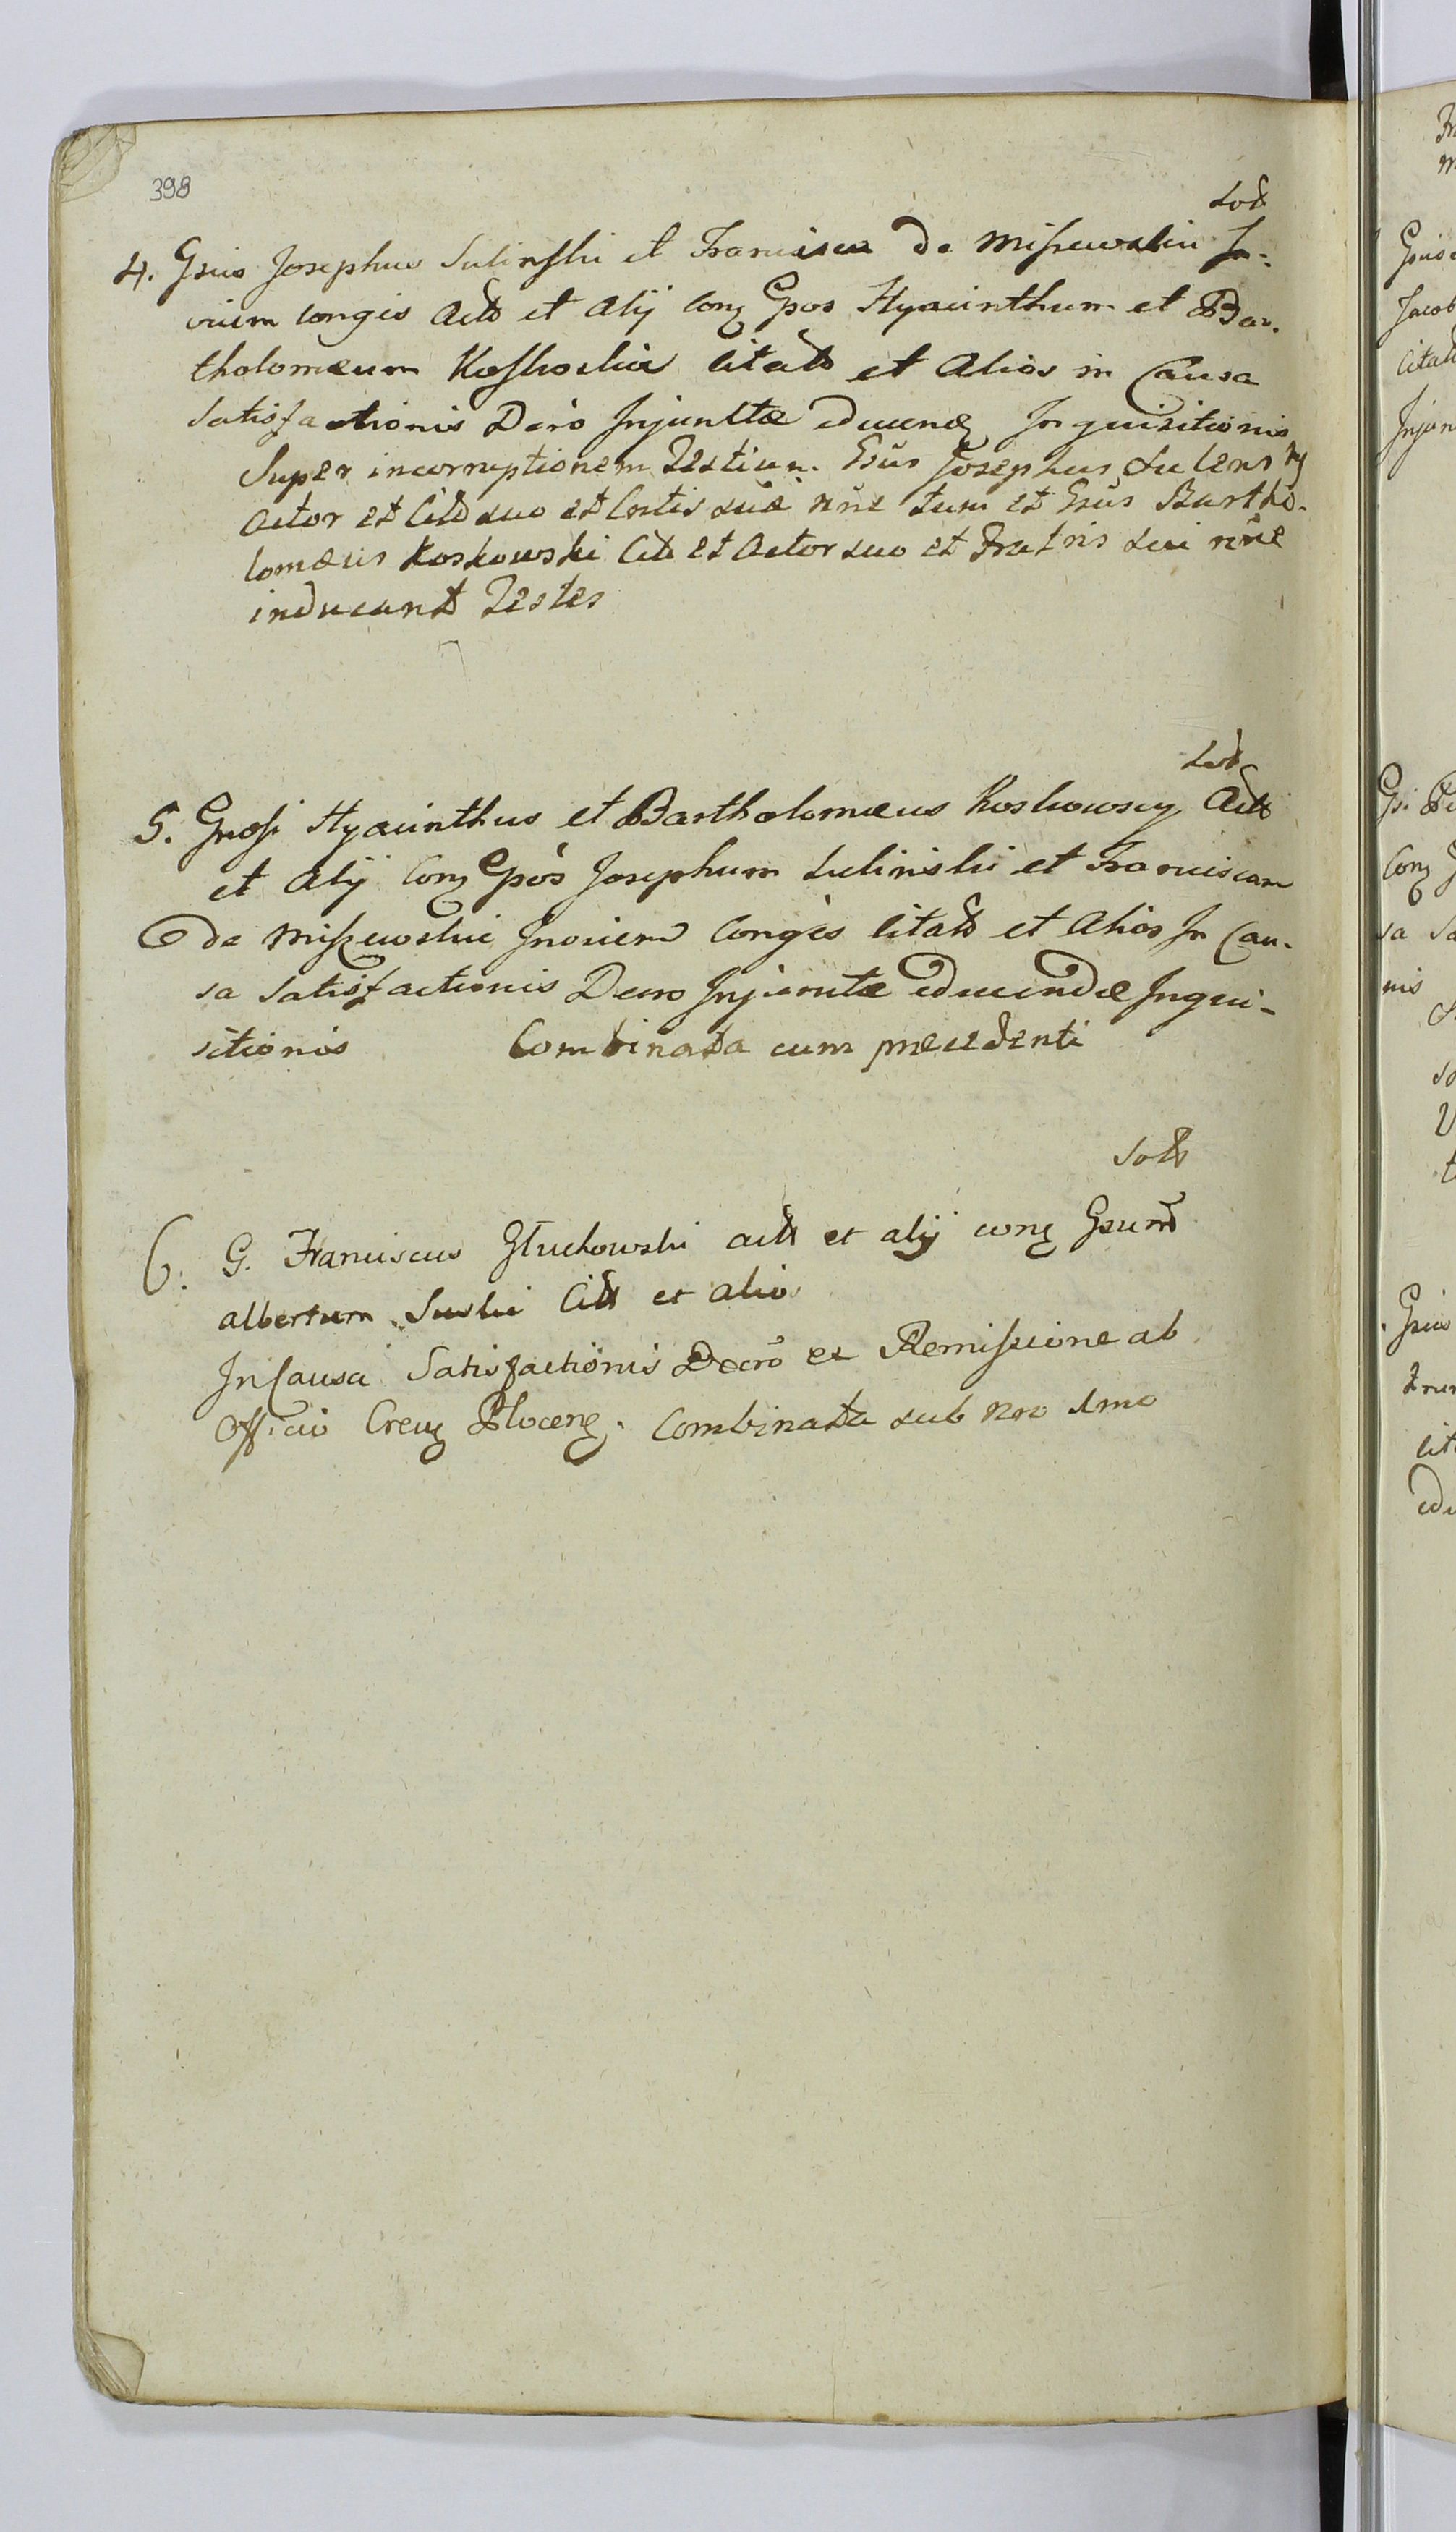 398
Sos
4. Gsus Josephus Sulinski et Francisca de Miszewskie In-
vicem conges Acts et Alij Conq Gsos Hyacinthum et Bar-
tholomæum Koskoskie Citats et Alios in Causa
Satisfactionis Decro Injunctæ educenq Inquisitionis
Super incorruptionem Testium. Gsus Josephus Sulensky
Actor et Citd suo et Cortis suæ nne tum et Gsus Bartho-
lomæus Koskowski Citd et Actor suo et Fratris sui nne
inducant Testes
Sos
5. Gnosi Hyacinthus et Bartholomæus Koskowscy Acts
et Alij Conq Gsos Josephum Sulinski et Franciscam
de Miszewskie Invicem Conges Citats et Alios In Cau-
sa Satisfactionis Decro Injunctæ educendæ Inqui-
sitionis Combinata cum præcedenti
Sos
6. G. Franciscus Głuchowski acts et alij conq Gsum
albertum Suski Cits et alios
In Causa Satisfactionis Decro et Remissione ab
Officio Creuq Plocenq. Combinata sub nro 1mo